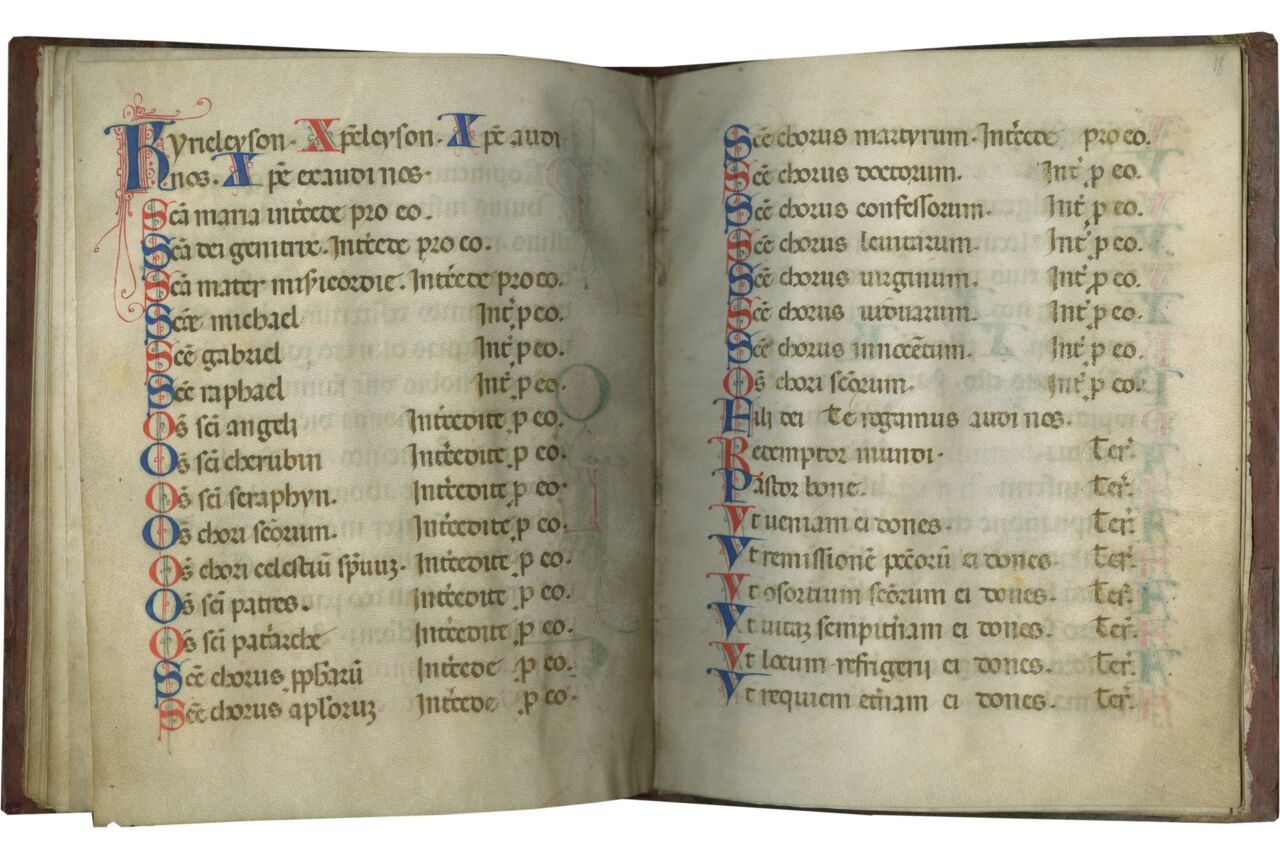 Kyrieleyson. Xp̄eleyson. Xp̄e audi
nos. Xp̄e exaudi nos.
Sc̄a maria int̄cede pro eo.
Sc̄a dei genitrix. Int̄cede pro eo.
Sc̄a mater mis̄icordie. Int̄cede pro eo.
Sc̄e michael Int̄ p eo.
Sc̄e gabriel Int̄ p eo.
Sc̄e raphael Int̄ p eo.
Om̄s sc̄i angeli Int̄cedite p eo.
Om̄s sc̄i cherubin Int̄cedite p eo.
Om̄s sc̄i seraphyn. Int̄cedite p eo.
Om̄s chori sc̄orum. Int̄cedite p eo.
Om̄s chori celestiū sp̄uuꝫ. Int̄cedite p eo.
Om̄s sc̄i patres. Int̄cedite p eo.
Om̄s sc̄i pat̄arche Int̄cedite p eo.
Sc̄e chorus ꝓpharū Int̄cede p eo.
Sc̄e chorus apl̄oruꝫ Int̄cede p eo.
18
Sc̄e chorus martyrum. Int̄cede pro eo.
Sc̄e chorus doctorum. Int̄ p eo.
Sc̄e chorus confessorum. Int̄ p eo.
Sc̄e chorus leuitarum. Int̄ p eo.
Sc̄e chorus uirginum. Int̄ p eo.
Sc̄e chorus uiduarum. Int̄ p eo.
Sc̄e chorus innocētum. Int̄ p eo.
Om̄s chori sc̄orum. Int̄ p eo.
Fili dei Te rogamus audi nos.
Redemptor mundi. Ter̄.
Pastor bone. Ter̄.
Vt ueniam ei dones. Ter̄.
Vt remissionē pc̄corū ei dones. Ter̄.
Vt ɔsortium sc̄orum ei dones. Ter̄.
Vt uitaꝫ sempit̄nam ei dones. Ter̄.
Vt locum refrigerij ei dones. Ter̄.
Vt requiem et̄nam ei dones. Ter̄.